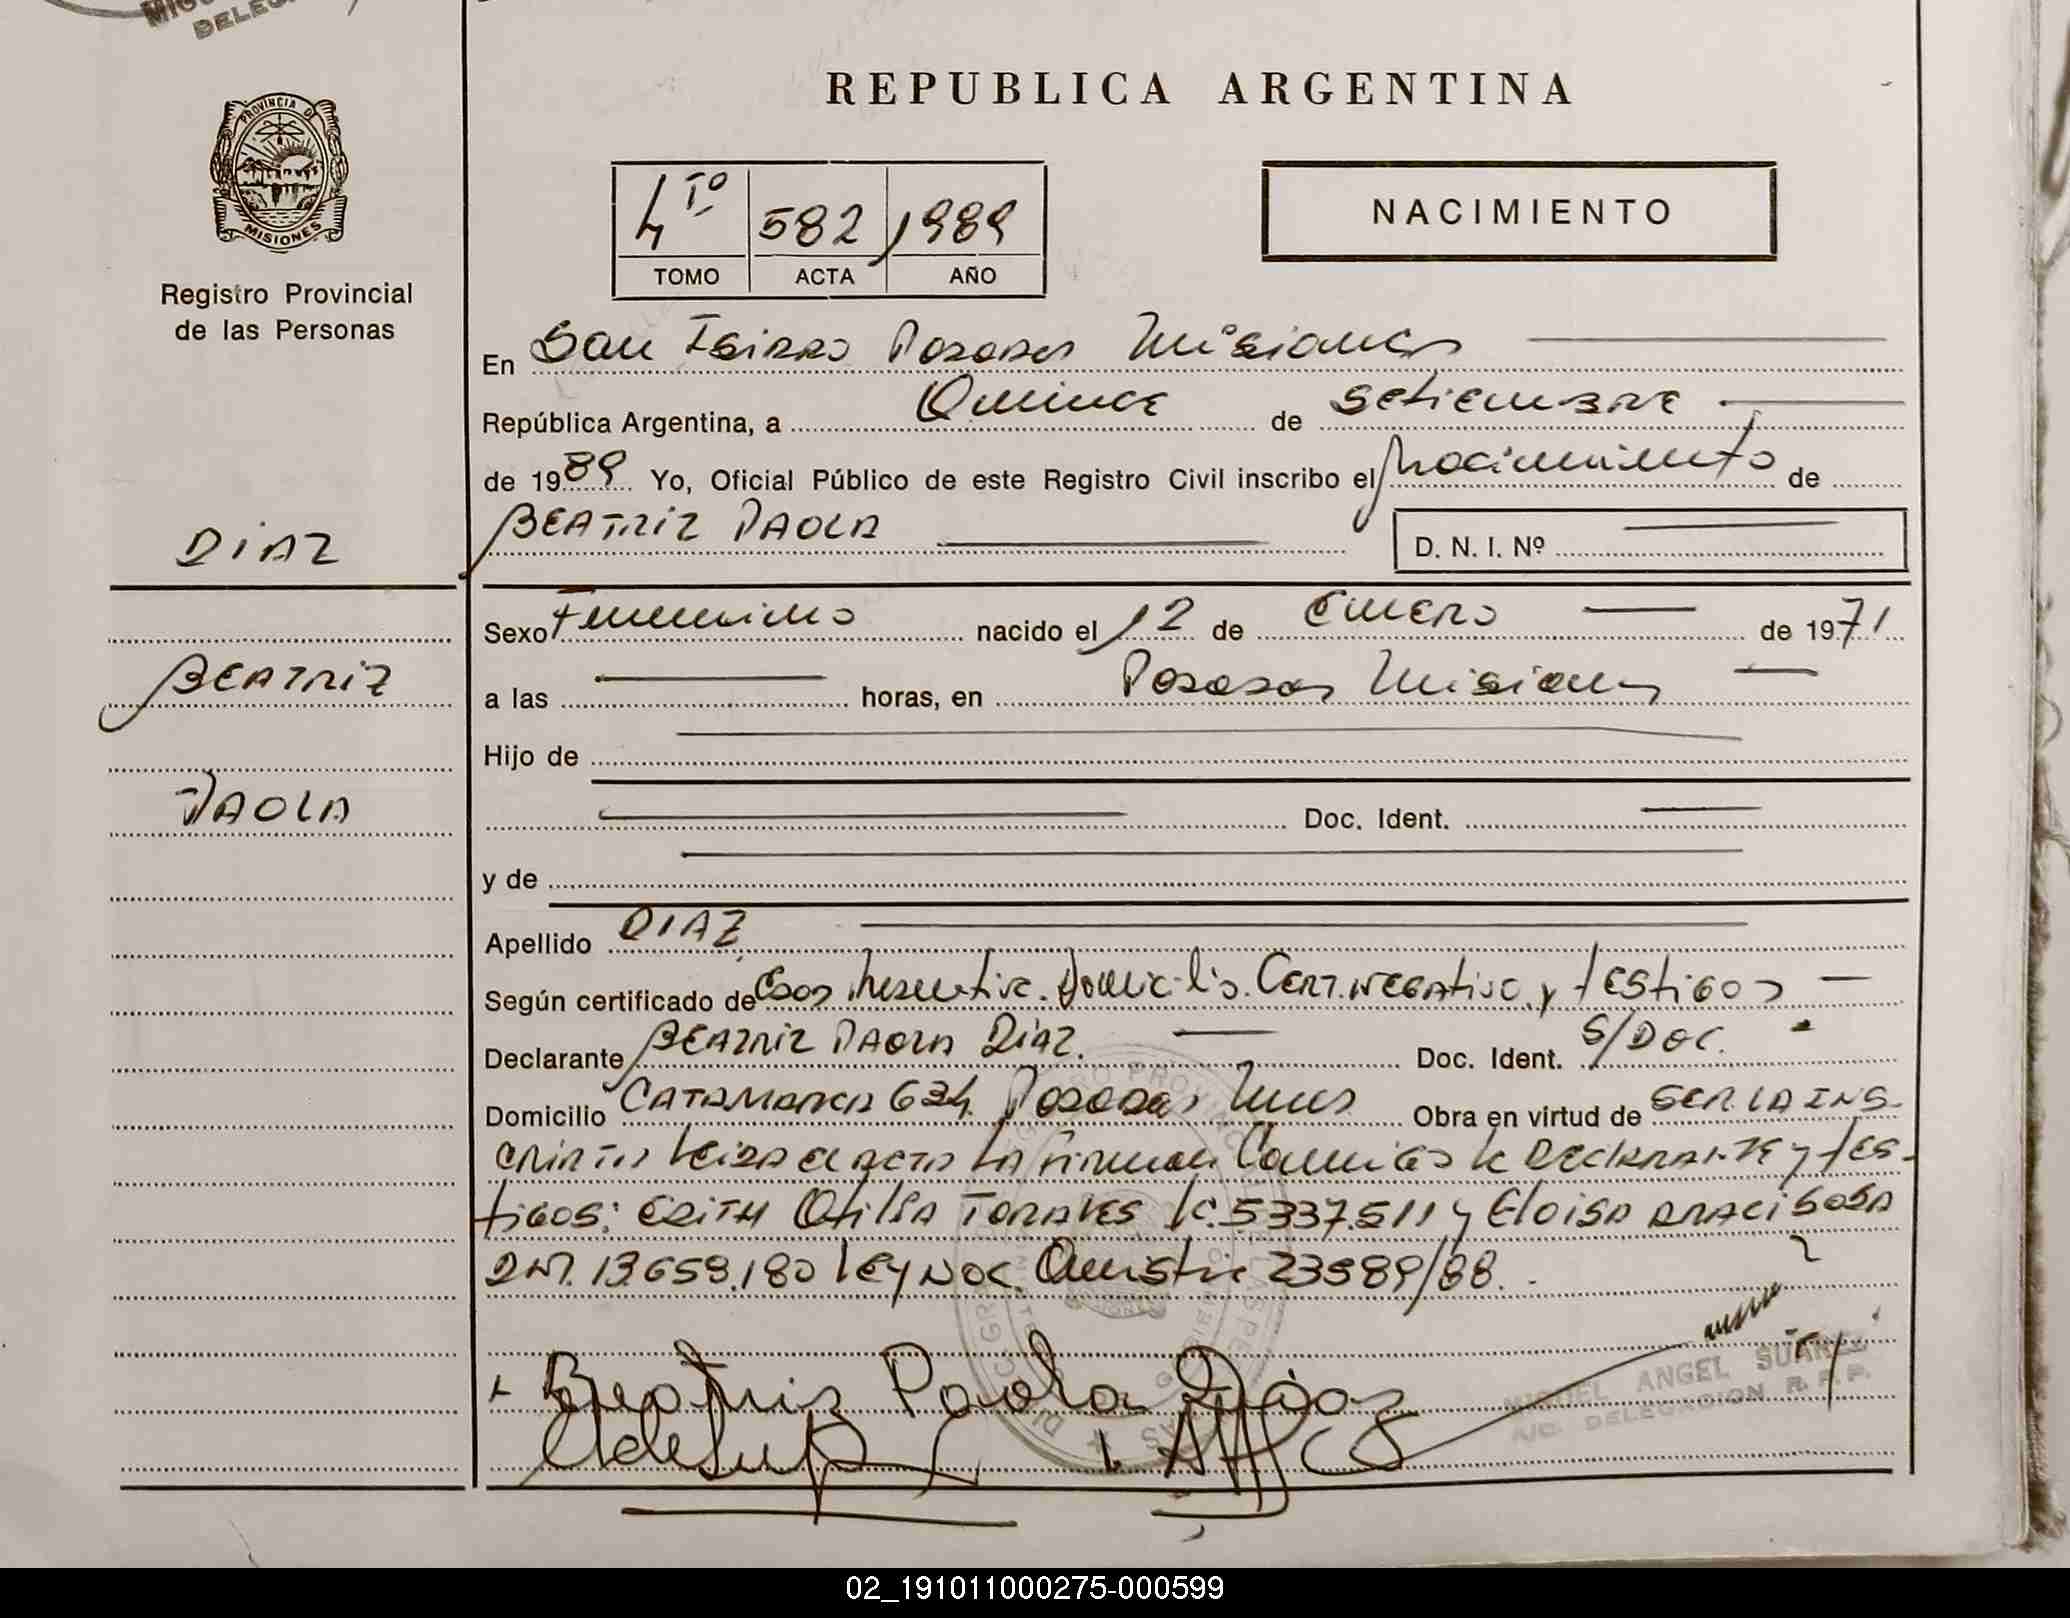 DELEG
PROVINCIA D
MISIONES
Registro Provincial
de las Personas
DIAZ
BEATRIZ
PAOLA
REPUBLICA ARGENTINA
4 TO 582 1989
TOMO ACTA AÑO
NACIMIENTO
En San Isidro Posadas Misiones
República Argentina, a Quince de setiembre
de 1989 Yo, Oficial Público de este Registro Civil inscribo el Nacimiento de
BEATRIZ PAOLA
D. N. I. Nº
Sexo Femenino nacido el 12 de Enero de 1971
a las horas, en Posadas Misiones
Hijo de
Doc. Ident.
y de
Apellido DIAZ
Según certificado de Domicilio. Cert. negativo y testigos
Declarante BEATRIZ PAOLA DIAZ. Doc. Ident. S/Doc.
Domicilio CATAMARCA 634 Posadas Mnes Obra en virtud de SER LA INS-
CRIPTA Leida el acta la firman Conmigo la Declarante y tes-
tigos: EDITH Otilia TORALES lc. 5337.511 y Eloisa ARACI SOSA
DNI. 13.659.180 ley Nac. Amistia 23989/88.
Beatriz Paola Diaz
MIGUEL ANGEL SUAREZ
A/C. DELEGACION R. P. P.
02_191011000275-000599